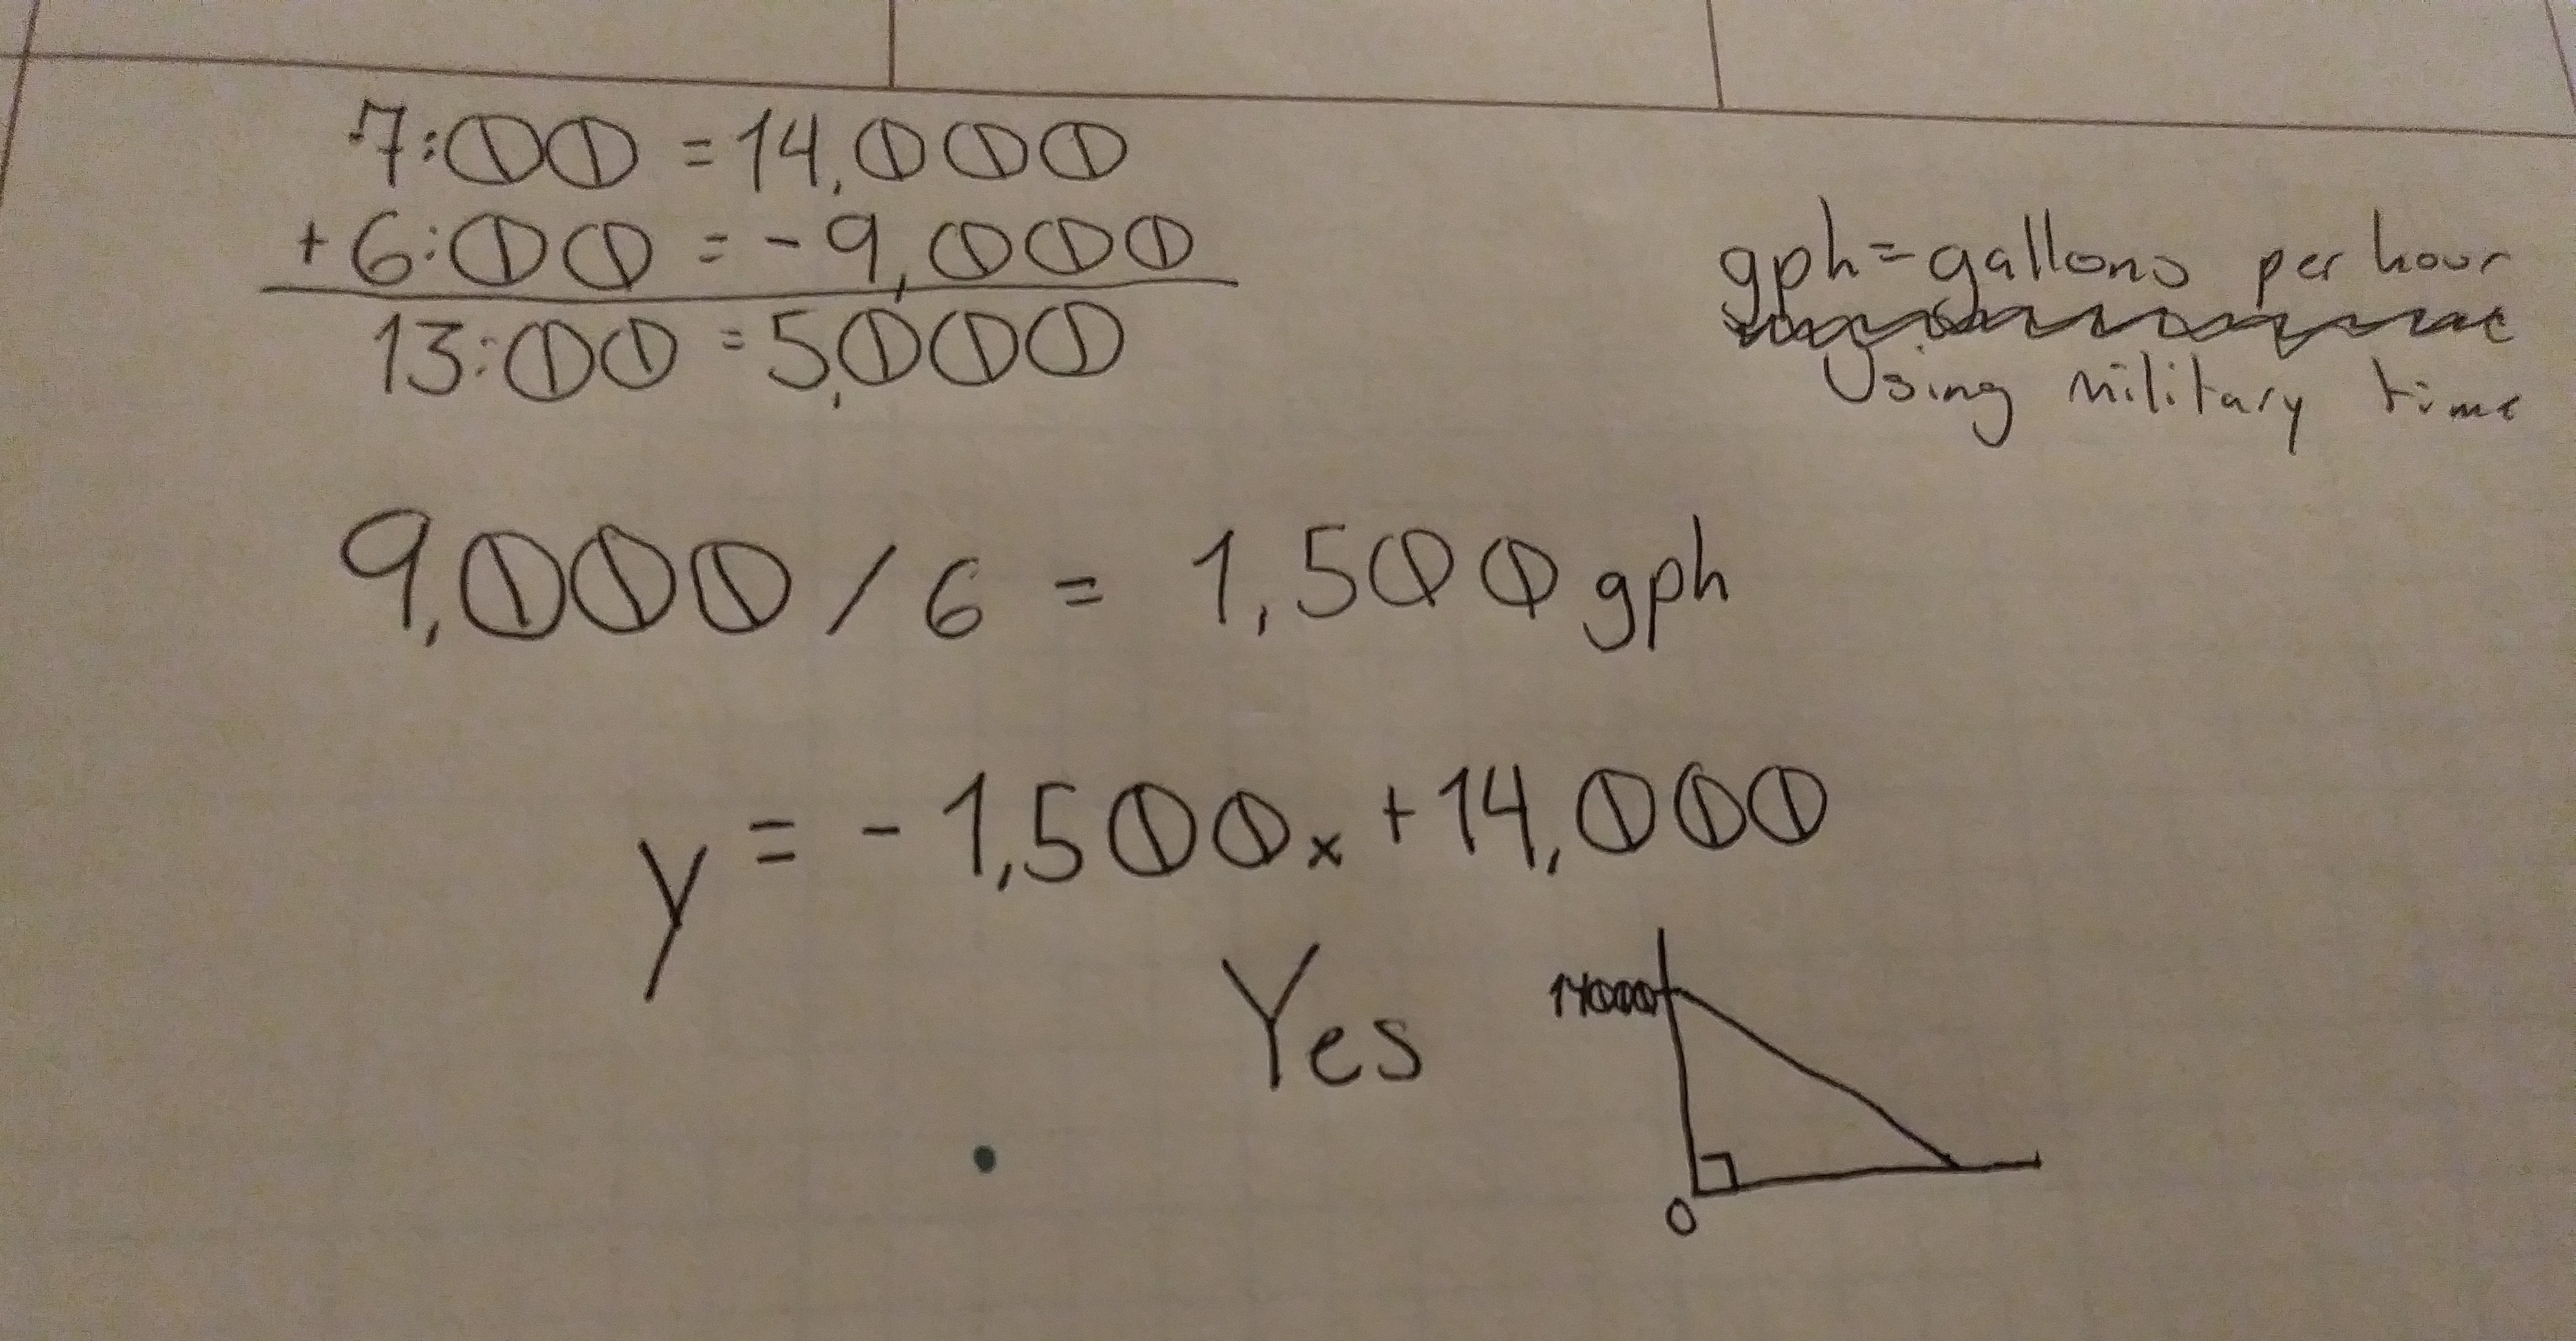 7:00 = 14,000
+6:00 = -9,000
13:00 = 5,000
gph = gallons per hour
Using military time
9,000 / 6 = 1,500 gph
y = -1,500x + 14,000
Yes
14000
0